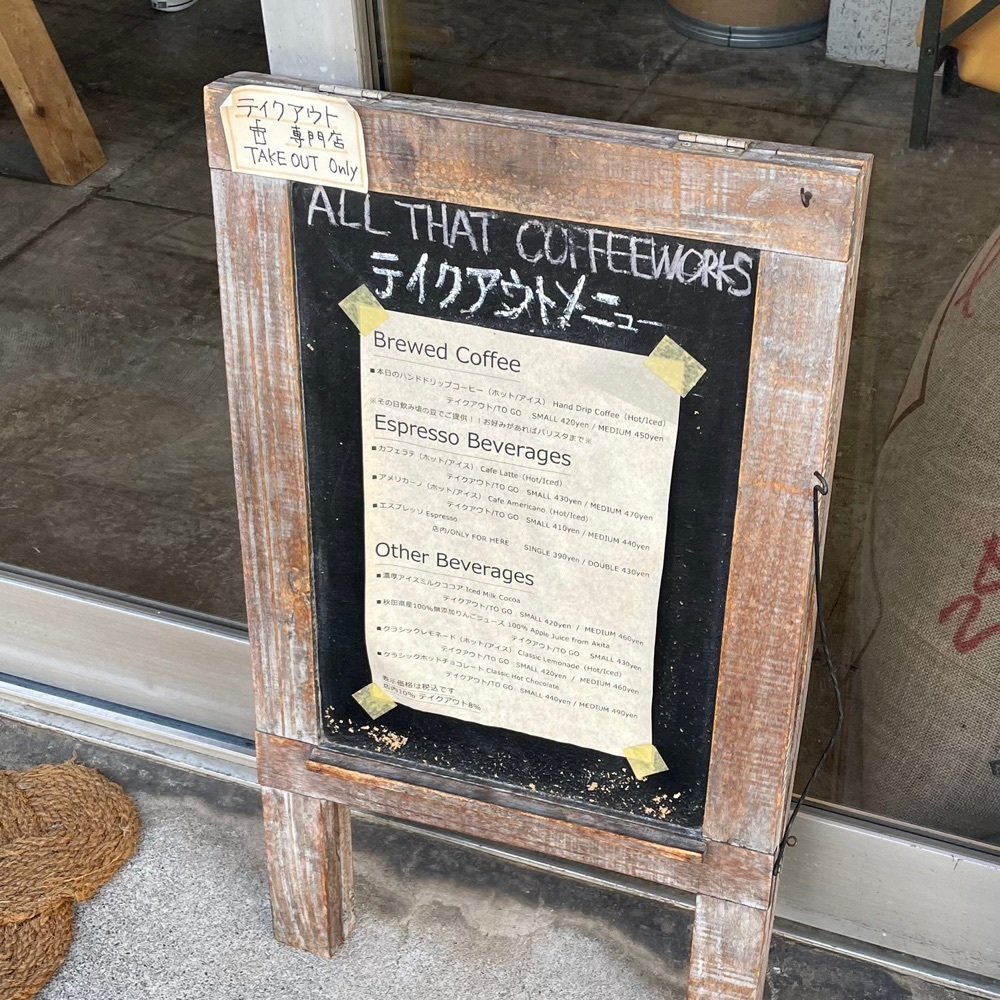 テイクアウト
専門店
TAKE OUT Only
ALL THAT COFFEEWORKS
テイクアウトメニュー
Brewed Coffee
■本日のハンドドリップコーヒー（ホット/アイス） Hand Drip Coffee（Hot/Iced）
テイクアウト/TO GO SMALL 420yen / MEDIUM 450yen
※その日飲み頃の豆でご提供！！お好みがあればバリスタまで※
Espresso Beverages
■カフェラテ（ホット/アイス） Cafe Latte（Hot/Iced）
テイクアウト/TO GO SMALL 430yen / MEDIUM 470yen
■アメリカーノ（ホット/アイス） Cafe Americano（Hot/Iced）
テイクアウト/TO GO SMALL 410yen / MEDIUM 440yen
■エスプレッソ Espresso
店内/ONLY FOR HERE SINGLE 390yen / DOUBLE 430yen
Other Beverages
■濃厚アイスミルクココア Iced Milk Cocoa
テイクアウト/TO GO SMALL 420yen / MEDIUM 460yen
■秋田県産100%無添加りんごジュース 100% Apple Juice from Akita
テイクアウト/TO GO SMALL 430yen
■クラシックレモネード（ホット/アイス） Classic Lemonade（Hot/Iced）
テイクアウト/TO GO SMALL 420yen / MEDIUM 460yen
■クラシックホットチョコレート Classic Hot Chocolate
テイクアウト/TO GO SMALL 440yen / MEDIUM 490yen
表示価格は税込です
店内10% テイクアウト8%